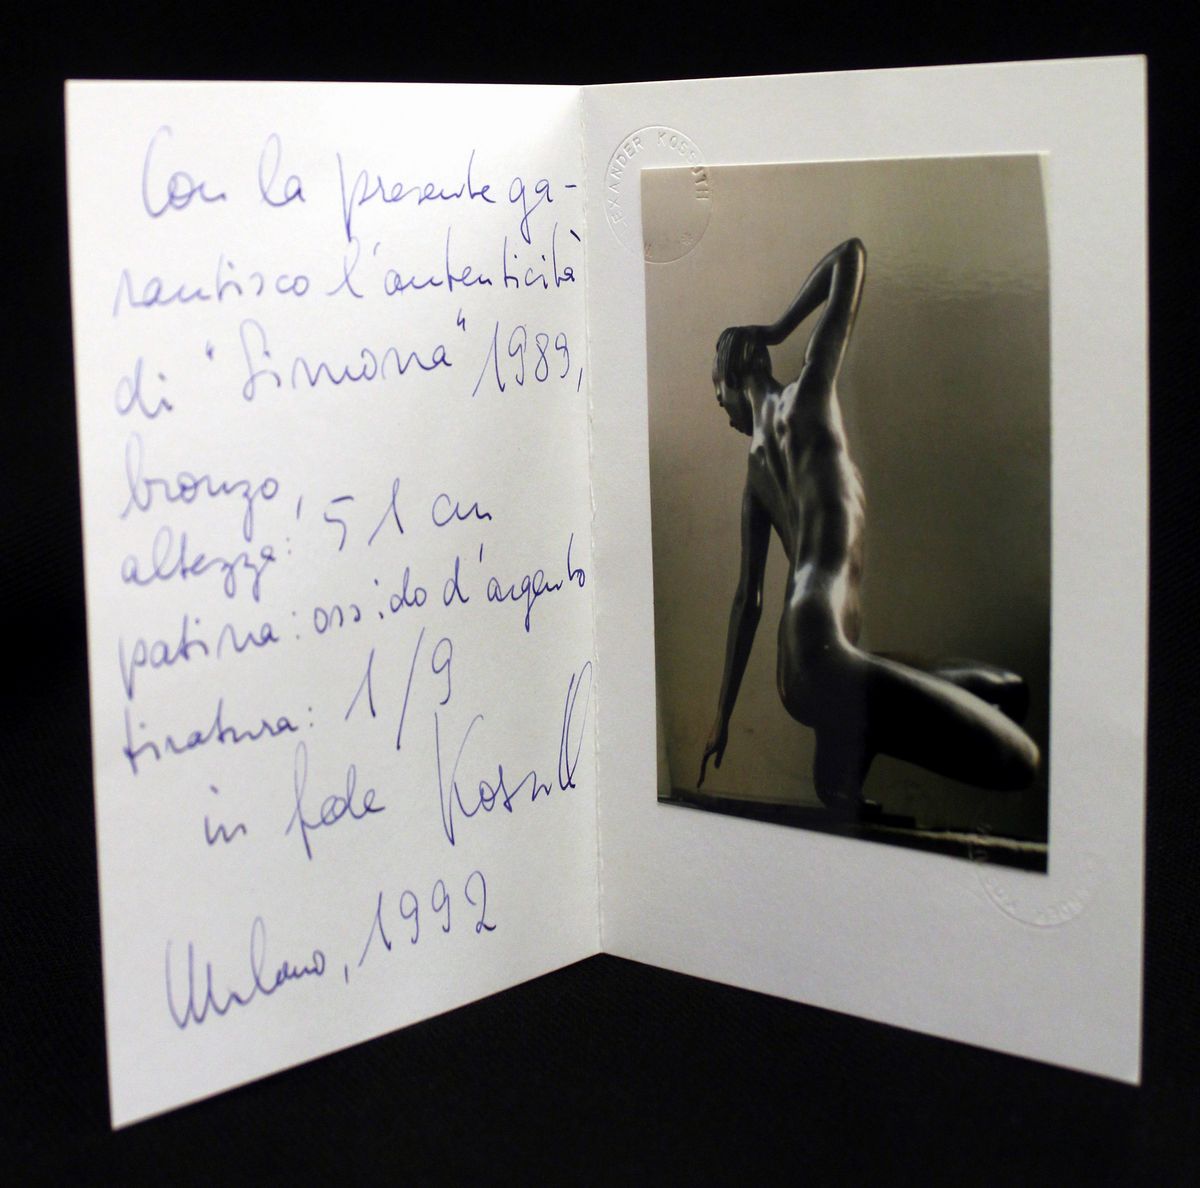 Con la presente ga-
rantisco l'autenticità
di "Simona" 1989,
bronzo,
altezza: 51 cm
patina: ossido d'argento
tiratura: 1/9
in fede Kossuth
Milano, 1992
EXANDER KOSSUTH